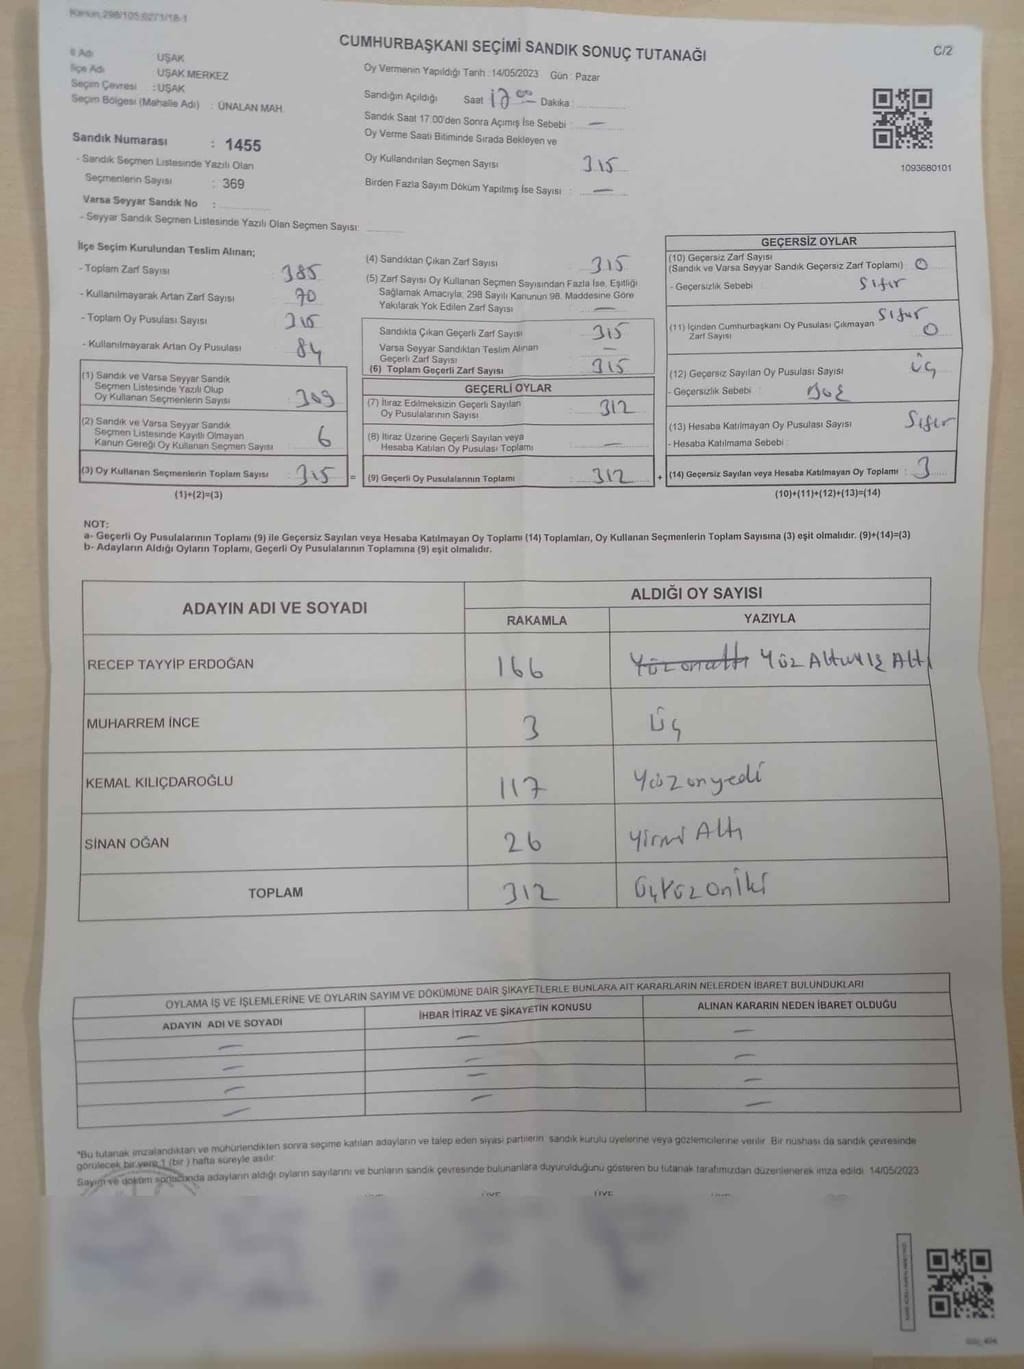 CUMHURBAŞKANI SEÇİMİ SANDIK SONUÇ TUTANAĞI
C/2
İl Adı : UŞAK
İlçe Adı : UŞAK MERKEZ
Seçim Çevresi : UŞAK
Seçim Bölgesi (Mahalle Adı) : ÜNALAN MAH.
Sandık Numarası : 1455
- Sandık Seçmen Listesinde Yazılı Olan
Seçmenlerin Sayısı : 369
Varsa Seyyar Sandık No :
- Seyyar Sandık Seçmen Listesinde Yazılı Olan Seçmen Sayısı:
Oy Vermenin Yapıldığı Tarih : 14/05/2023 Gün : Pazar
Sandığın Açıldığı Saat 17 00 Dakika :
Sandık Saat 17:00'den Sonra Açımış İse Sebebi : —
Oy Verme Saati Bitiminde Sırada Bekleyen ve
Oy Kullandırılan Seçmen Sayısı 315
Birden Fazla Sayım Döküm Yapılmış İse Sayısı : —
1093680101
İlçe Seçim Kurulundan Teslim Alınan;
- Toplam Zarf Sayısı 385
- Kullanılmayarak Artan Zarf Sayısı 70
- Toplam Oy Pusulası Sayısı
- Kullanılmayarak Artan Oy Pusulası 84
(1) Sandık ve Varsa Seyyar Sandık
Seçmen Listesinde Yazılı Olup
Oy Kullanan Seçmenlerin Sayısı 309
(2) Sandık ve Varsa Seyyar Sandık
Seçmen Listesinde Kayıtlı Olmayan
Kanun Gereği Oy Kullanan Seçmen Sayısı 6
(3) Oy Kullanan Seçmenlerin Toplam Sayısı : 315
(1)+(2)=(3)
(4) Sandıktan Çıkan Zarf Sayısı 315
(5) Zarf Sayısı Oy Kullanan Seçmen Sayısından Fazla İse, Eşitliği
Sağlamak Amacıyla, 298 Sayılı Kanunun 98. Maddesine Göre
Yakılarak Yok Edilen Zarf Sayısı —
Sandıkta Çıkan Geçerli Zarf Sayısı 315
Varsa Seyyar Sandıktan Teslim Alınan
Geçerli Zarf Sayısı —
(6) Toplam Geçerli Zarf Sayısı 315
GEÇERLİ OYLAR
(7) İtiraz Edilmeksizin Geçerli Sayılan
Oy Pusulalarının Sayısı 312
(8) İtiraz Üzerine Geçerli Sayılan veya
Hesaba Katılan Oy Pusulası Toplamı —
= (9) Geçerli Oy Pusulalarının Toplamı 312 +
GEÇERSİZ OYLAR
(10) Geçersiz Zarf Sayısı
(Sandık ve Varsa Seyyar Sandık Geçersiz Zarf Toplamı) : 0
- Geçersizlik Sebebi : Sıfır
(11) İçinden Cumhurbaşkanı Oy Pusulası Çıkmayan Sıfır
Zarf Sayısı 0
(12) Geçersiz Sayılan Oy Pusulası Sayısı : Üç
- Geçersizlik Sebebi :
(13) Hesaba Katılmayan Oy Pusulası Sayısı : Sıfır
- Hesaba Katılmama Sebebi :
(14) Geçersiz Sayılan veya Hesaba Katılmayan Oy Toplamı : 3
(10)+(11)+(12)+(13)=(14)
NOT:
a- Geçerli Oy Pusulalarının Toplamı (9) ile Geçersiz Sayılan veya Hesaba Katılmayan Oy Toplamı (14) Toplamları, Oy Kullanan Seçmenlerin Toplam Sayısına (3) eşit olmalıdır. (9)+(14)=(3)
b- Adayların Aldığı Oyların Toplamı, Geçerli Oy Pusulalarının Toplamına (9) eşit olmalıdır.
ADAYIN ADI VE SOYADI
ALDIĞI OY SAYISI
RAKAMLA YAZIYLA
RECEP TAYYİP ERDOĞAN 166 Yüzonaltı Yüz Altmış Altı
MUHARREM İNCE 3 Üç
KEMAL KILIÇDAROĞLU 117 Yüzonyedi
SİNAN OĞAN 26 Yirmi Altı
TOPLAM 312 Üçyüzoniki
OYLAMA İŞ VE İŞLEMLERİNE VE OYLARIN SAYIM VE DÖKÜMÜNE DAİR ŞİKAYETLERLE BUNLARA AİT KARARLARIN NELERDEN İBARET BULUNDUKLARI
ADAYIN ADI VE SOYADI İHBAR İTİRAZ VE ŞİKAYETİN KONUSU ALINAN KARARIN NEDEN İBARET OLDUĞU
— — —
— — —
— — —
— — —
*Bu tutanak imzalandıktan ve mühürlendikten sonra seçime katılan adayların ve talep eden siyasi partilerin sandık kurulu üyelerine veya gözlemcilerine verilir. Bir nüshası da sandık çevresinde
görülecek bir yere 1 (bir ) hafta süreyle asılır.
Sayım ve döküm sonucunda adayların aldığı oyların sayılarını ve bunların sandık çevresinde bulunanlara duyurulduğunu gösteren bu tutanak tarafımızdan düzenlenerek imza edildi. 14/05/2023